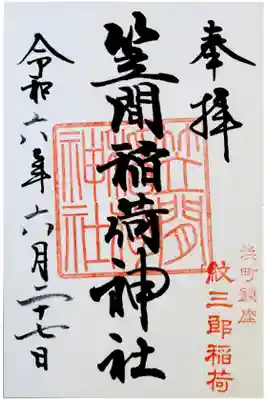 奉拝
笠間稲荷神社
笠間稲荷神社
浜町鎮座
紋三郎稲荷
令和六年六月二十七日